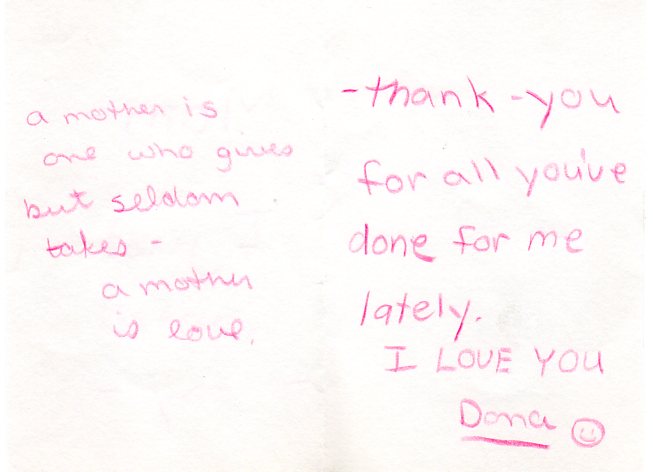 a mother is
one who gives
but seldom
takes -
a mother
is love.
-thank-you
for all you've
done for me
lately.
I LOVE YOU
Dona